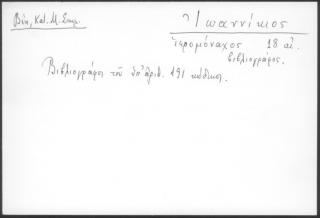 Βέη, Κατ. Μ. Σπηλ.
Ἰωαννίκιος
ἱερομόναχος 18 αἰ.
βιβλιογράφος.
Βιβλιογράφος τοῦ ὑπ' ἀριθ. 191 κώδικος.